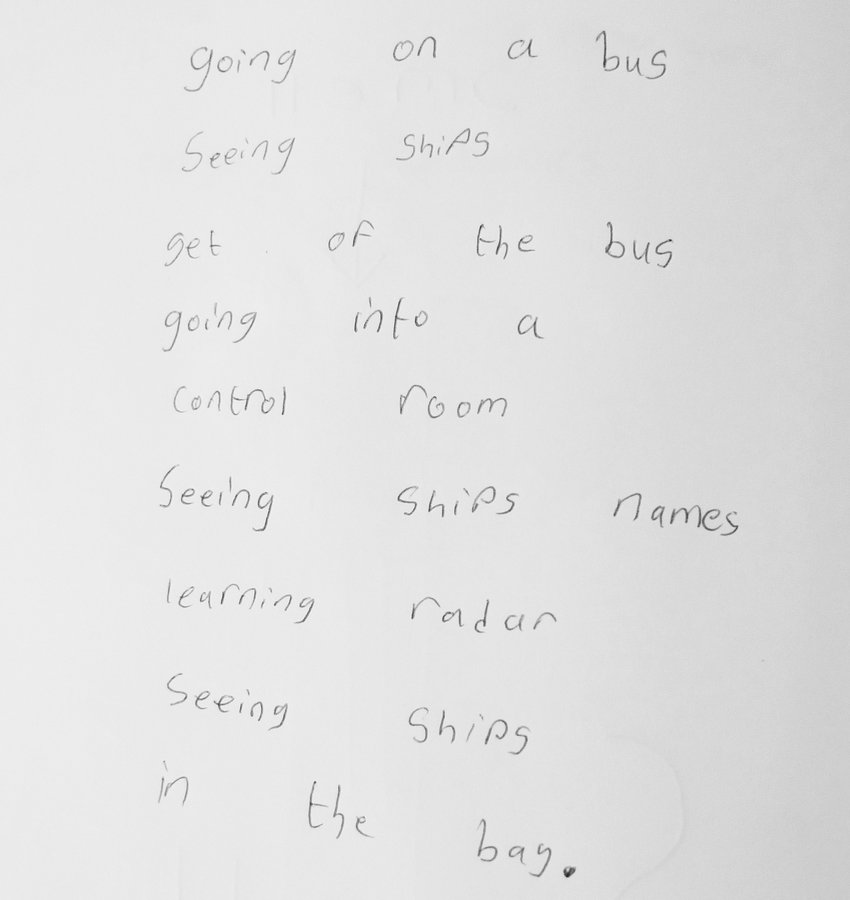 going on a bus
Seeing ships
get of the bus
going into a
control room
Seeing ships names
learning radar
Seeing ships
in the bay.